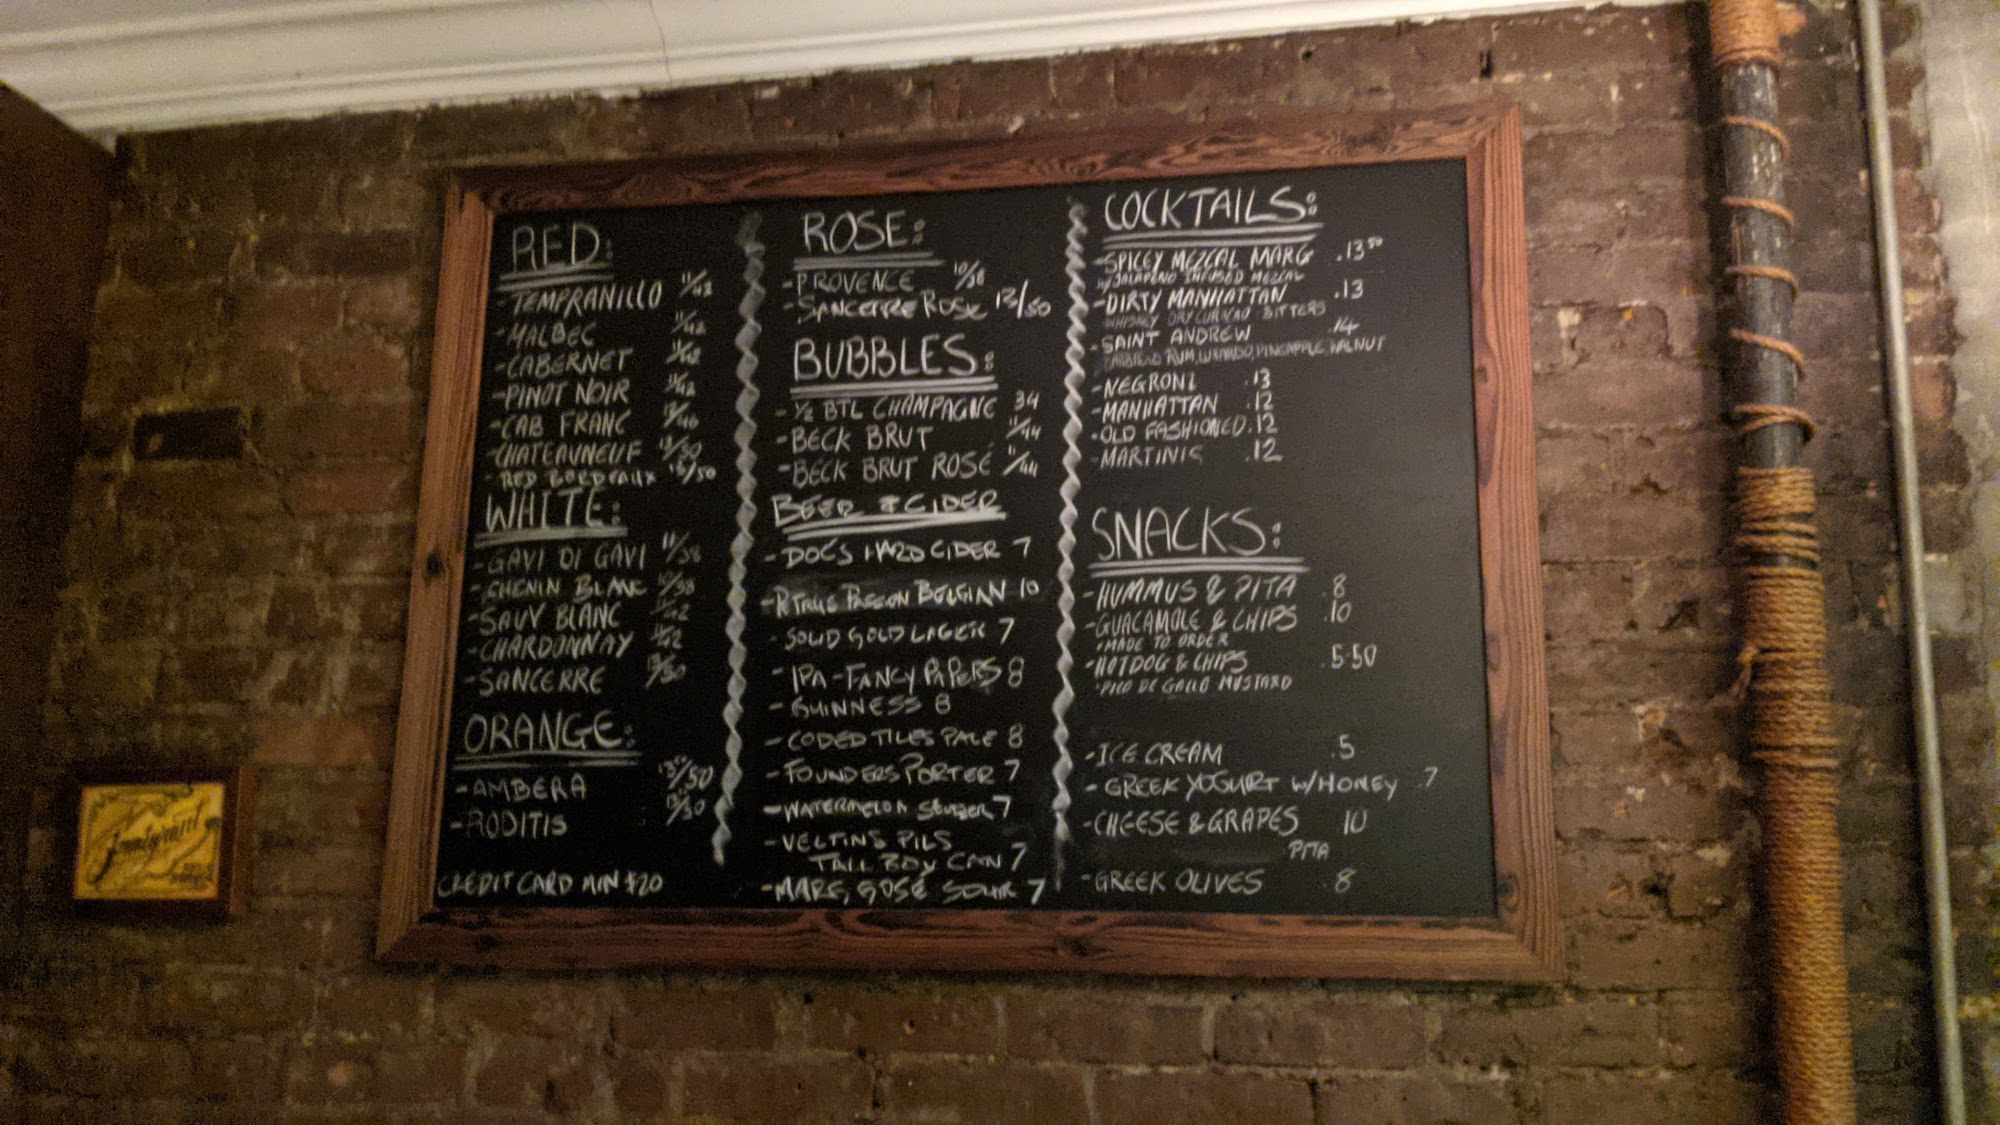 RED:
- TEMPRANILLO 11/42
- MALBEC 11/42
- CABERNET 11/42
- PINOT NOIR 11/42
- CAB FRANC
- CHATEAUNEUF 13/50
- RED BORDEAUX 13/50
WHITE:
- GAVI DI GAVI 11/38
- CHENIN BLANC 10/38
- SAUV BLANC 11/42
- CHARDONNAY 11/42
- SANCERRE 13/50
ORANGE:
- AMBERA 13⁵⁰/50
- RODITIS 13/50
CREDIT CARD MIN $20
ROSE:
- PROVENCE 10/38
- SANCERRE ROSE 13/50
BUBBLES:
- ½ BTL CHAMPAGNE 34
- BECK BRUT 11/44
- BECK BRUT ROSÉ 11/44
BEER & CIDER
- DOCS HARD CIDER 7
- BELGIAN 10
- SOLID GOLD LAGER 7
- IPA - FANCY PAPERS 8
- GUINNESS 8
- CODED TILES PALE 8
- FOUNDERS PORTER 7
- WATERMELON SELTZER 7
- VELTINS PILS
TALL BOY CAN 7
- GOSE SOUR 7
COCKTAILS:
- SPICEY MEZCAL MARG .13⁵⁰
W/ JALAPENO INFUSED MEZCAL
- DIRTY MANHATTAN .13
WHISKEY DRY CURACAO BITTERS
- SAINT ANDREW .14
RUM, LUXARDO, PINEAPPLE, WALNUT
- NEGRONI .13
- MANHATTAN .12
- OLD FASHIONED .12
- MARTINIS .12
SNACKS:
- HUMMUS & PITA .8
- GUACAMOLE & CHIPS .10
• MADE TO ORDER
- HOTDOG & CHIPS .5.50
• PICO DE GALLO MUSTARD
- ICE CREAM .5
- GREEK YOGURT W/HONEY .7
- CHEESE & GRAPES 10
PITA
- GREEK OLIVES .8
Immigrant